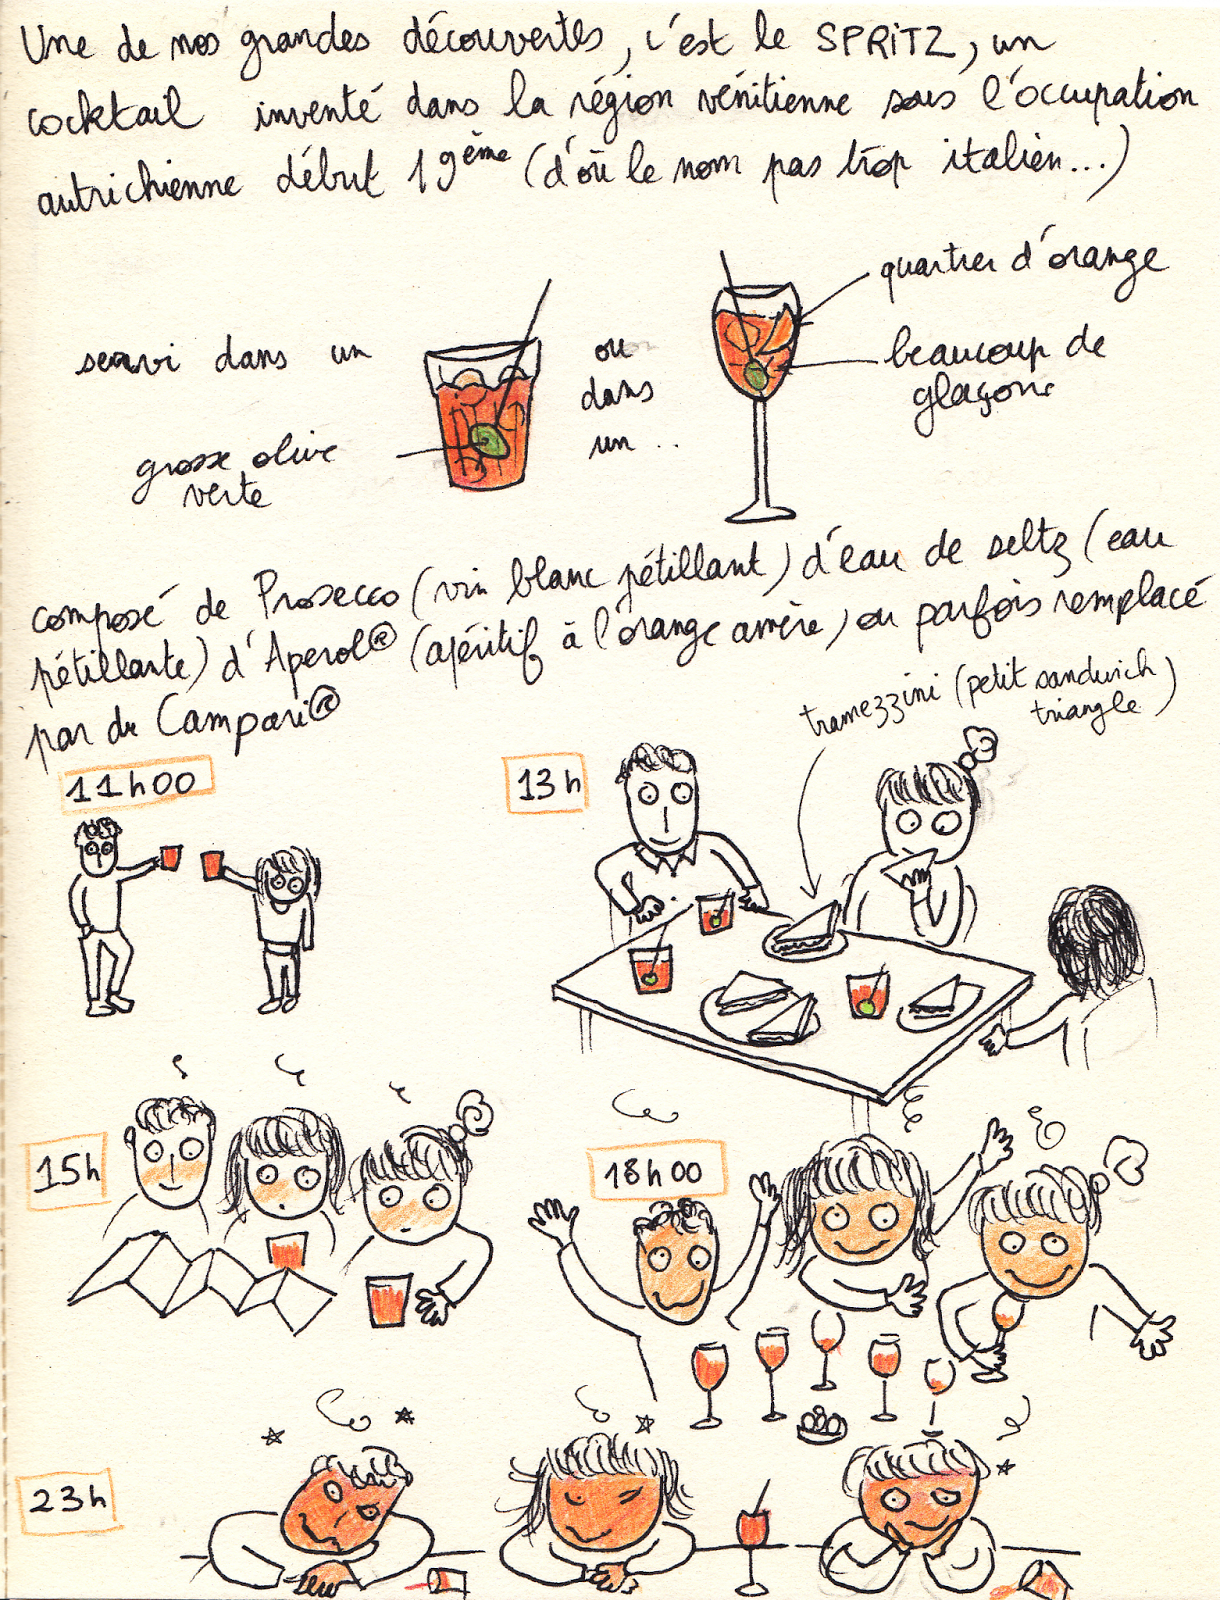 Une de nos grandes découvertes, c'est le SPRiTZ, un
cocktail inventé dans la région vénitienne sous l'occupation
autrichienne début 19ème (d'où le nom pas trop italien...)
quartier d'orange
servi dans un
ou
dans
un ..
beaucoup de
glaçons
grosse olive
verte
composé de Prosecco (vin blanc pétillant) d'eau de seltz (eau
pétillante) d'Aperol® (apéritif à l'orange amère) ou parfois remplacé
par du Campari®
tramezzini (petit sandwich
triangle)
11h00
13h
15h
18h00
23h